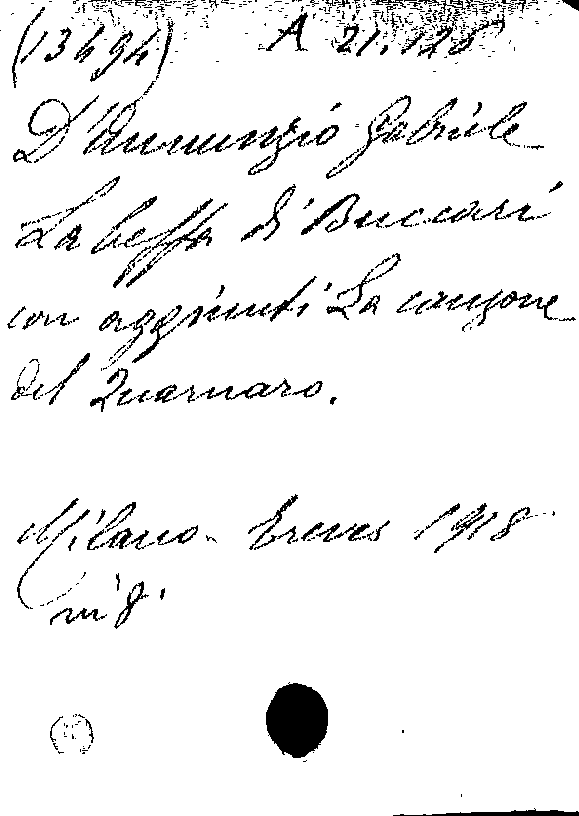 (13494) A 21.128
D'Annunzio Gabriele
La beffa di Buccari
con aggiunti La canzone
del Quarnaro.
Milano - Treves 1918
in 8.